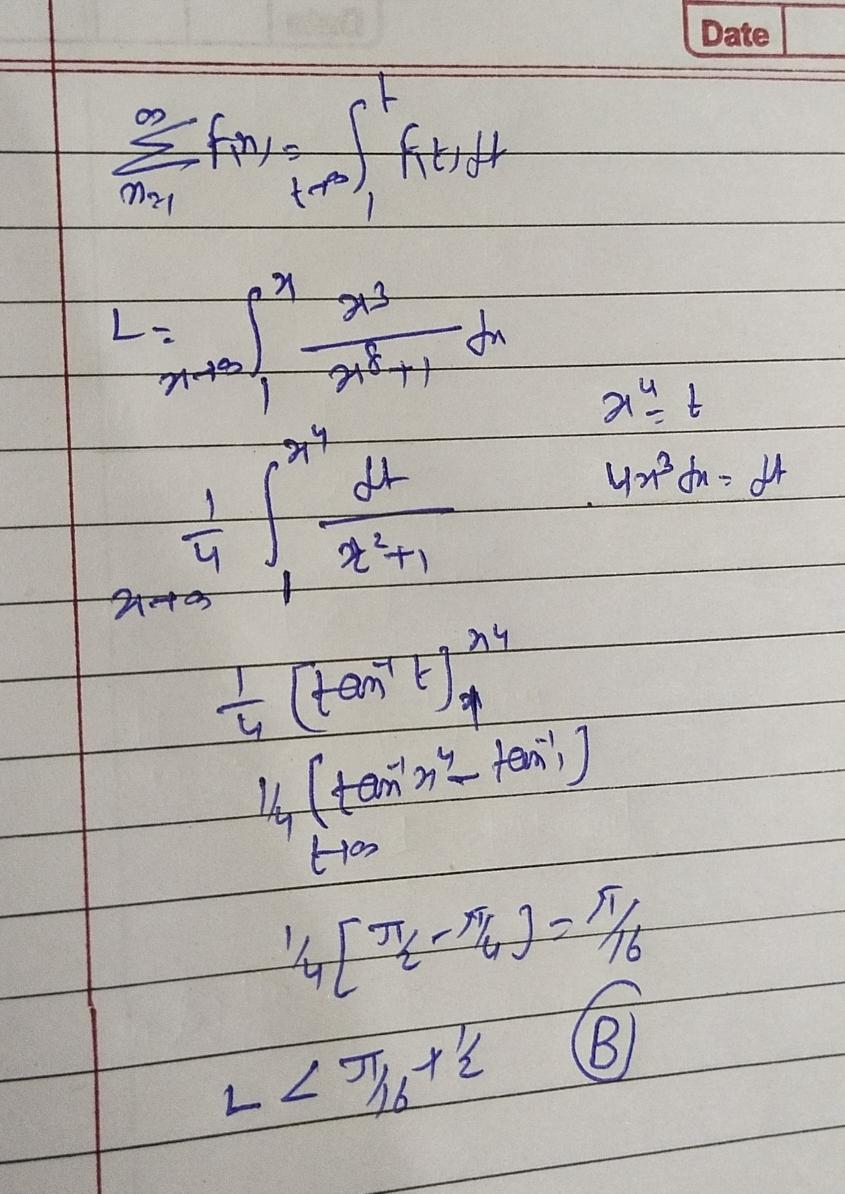 Date
∞ ∑ n=1 f(n) = t→∞ ∫₁ᵗ f(t) dt
L = x→∞ ∫₁ˣ x³/(x⁸+1) dx
x⁴ = t
4x³ dx = dt
x→∞ 1/4 ∫₁^(x⁴) dt/(x²+1)
1/4 [tan⁻¹ t]₁^(x⁴)
1/4 [tan⁻¹ x⁴ - tan⁻¹ 1]
t→∞
1/4 [π/2 - π/4] = π/16
L < π/16 + 1/2 (B)